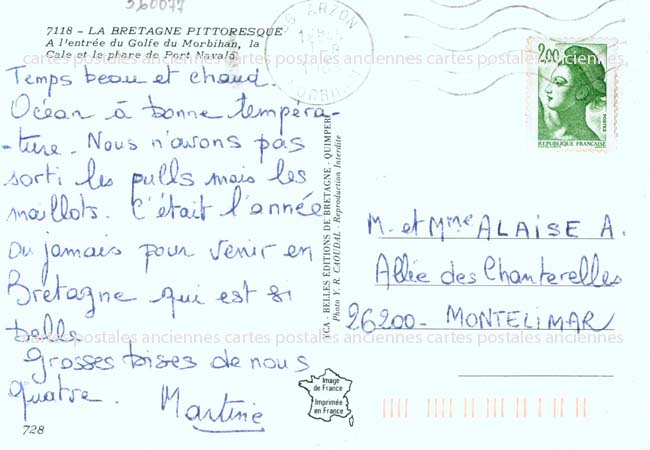 360077
7118 - LA BRETAGNE PITTORESQUE
A l'entrée du Golfe du Morbihan, la
Cale et le phare de Port Navalo.
Temps beau et chaud.
Océan à bonne tempéra-
-ture. Nous n'avons pas
sorti les pulls mais les
maillots. C'était l'année
ou jamais pour venir en
Bretagne qui est si
belle.
Grosses bises de nous
quatre. Martine
728
JCA - BELLES EDITIONS DE BRETAGNE - QUIMPER
Photo Y. R. CAOUDAL - Reproduction Interdite
56 ARZON
MORBIHAN
2,00
POSTES
REPUBLIQUE FRANÇAISE
M. et Mme ALAISE A.
Allée des Chanterelles
26200 - MONTELIMAR
Image
de France
Imprimée
en France
cartes postales anciennes cartes postales anciennes cartes postales anciennes
cartes postales anciennes cartes postales anciennes cartes postales anciennes